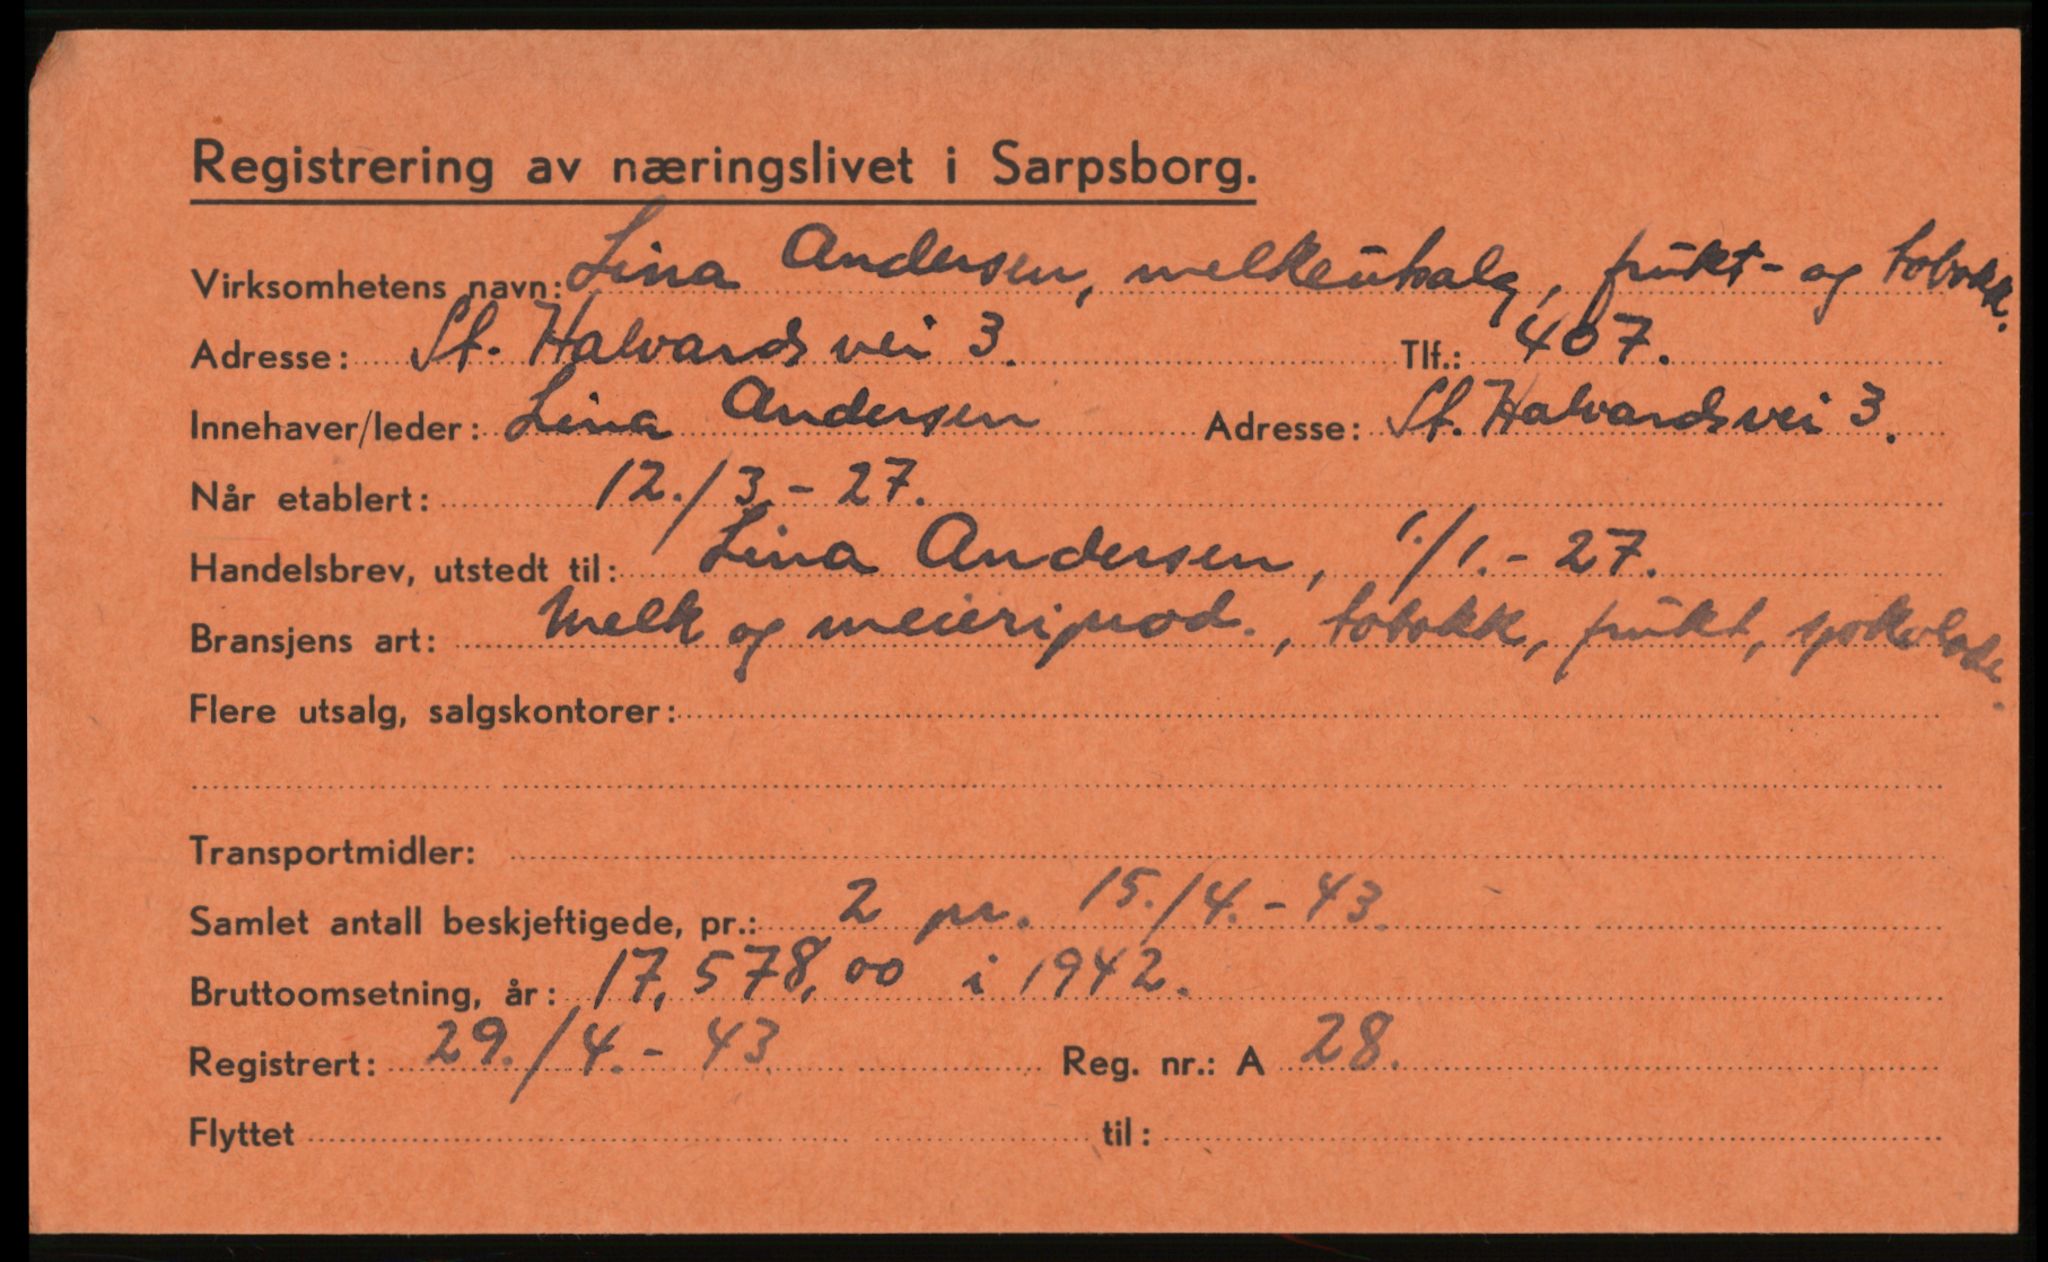 Registrering av næringslivet i Sarpsborg.
Virksomhetens navn: Lina Andersen, melkeutsalg, frukt- og tobakk.
Adresse: St. Halvards vei 3. Tlf.: 407.
Innehaver/leder: Lina Andersen Adresse: St. Halvards vei 3.
Når etablert: 12./3.-27.
Handelsbrev, utstedt til: Lina Andersen, 1./1.-27.
Bransjens art: Melk og meieriprod., tobakk, frukt, sjokolade.
Flere utsalg, salgskontorer:
Transportmidler:
Samlet antall beskjeftigede, pr.: 2 pr. 15./4.-43.
Bruttoomsetning, år: 17,578,00 i 1942.
Registrert: 29./4.-43. Reg. nr.: A 28.
Flyttet til: